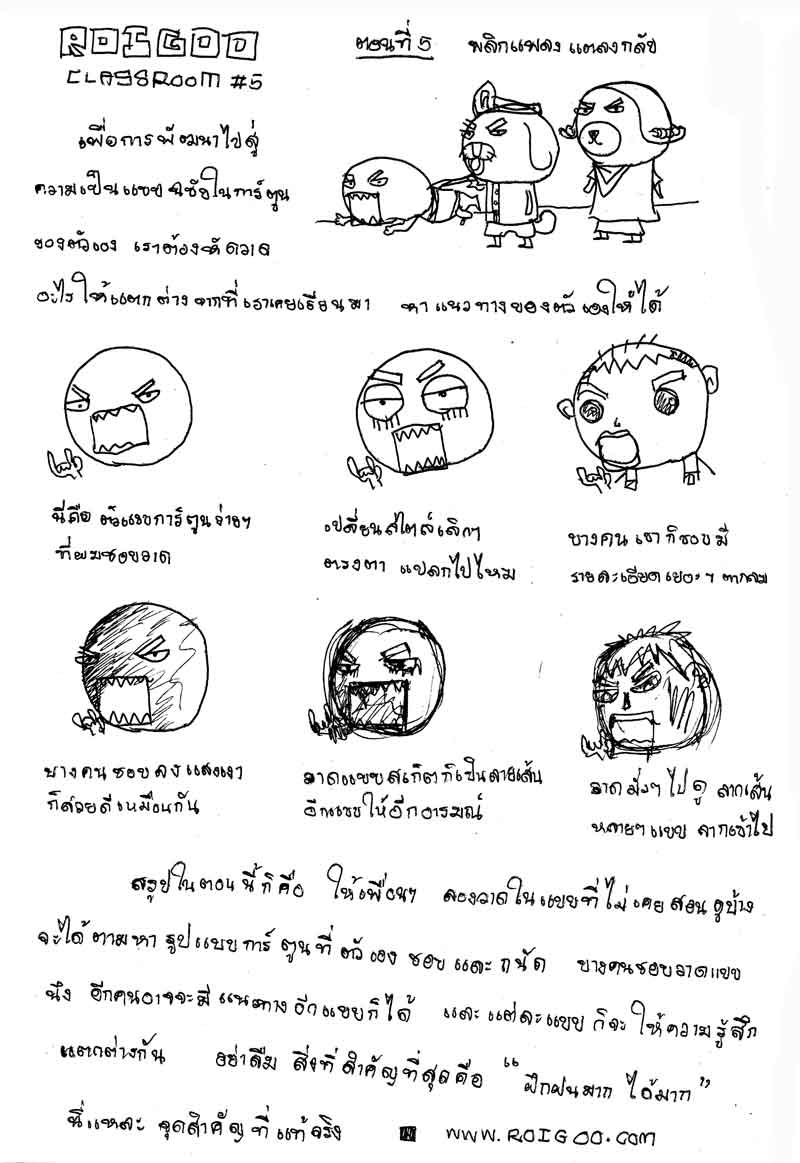 ROIGOO
CLASSROOM #5
ตอนที่ 5 พลิกแพลง แตลงกลับ
เพื่อการพัฒนาไปสู่
ความเป็นแบบฉบับในการ์ตูน
ของตัวเอง เราต้องหัดวาด
อะไรให้แตกต่างจากที่เราเคยเรียนมา หาแนวทางของตัวเองให้ได้
นี่คือ ตัวแบบการ์ตูนง่ายๆ
ที่ผมชอบวาด
เปลี่ยนสไตล์เล็กๆ
ตรงตา แปลกไปไหม
บางคน เขาก็ชอบมี
รายละเอียดเยอะๆ ตากลม
บางคนชอบลงแสงเงา
ก็สวยดีเหมือนกัน
วาดแบบสเก็ตก็เป็นลายเส้น
อีกแบบให้อีกอารมณ์
วาดมั่วๆ ไปดู ลากเส้น
หลายๆแบบ ลากเข้าไป
สรุปในตอนนี้ก็คือ ให้เพื่อนๆ ลองวาดในแบบที่ไม่เคยสอนดูบ้าง
จะได้ตามหา รูปแบบการ์ตูนที่ตัวเอง ชอบและถนัด บางคนชอบวาดแบบ
นึง อีกคนอาจจะมีแนวทางอีกแบบก็ได้ และแต่ละแบบ ก็จะให้ความรู้สึก
แตกต่างกัน อย่าลืม สิ่งที่สำคัญที่สุดคือ "ฝึกฝนมาก ได้มาก"
นี่แหละ จุดสำคัญที่แท้จริง WWW.ROIGOO.COM